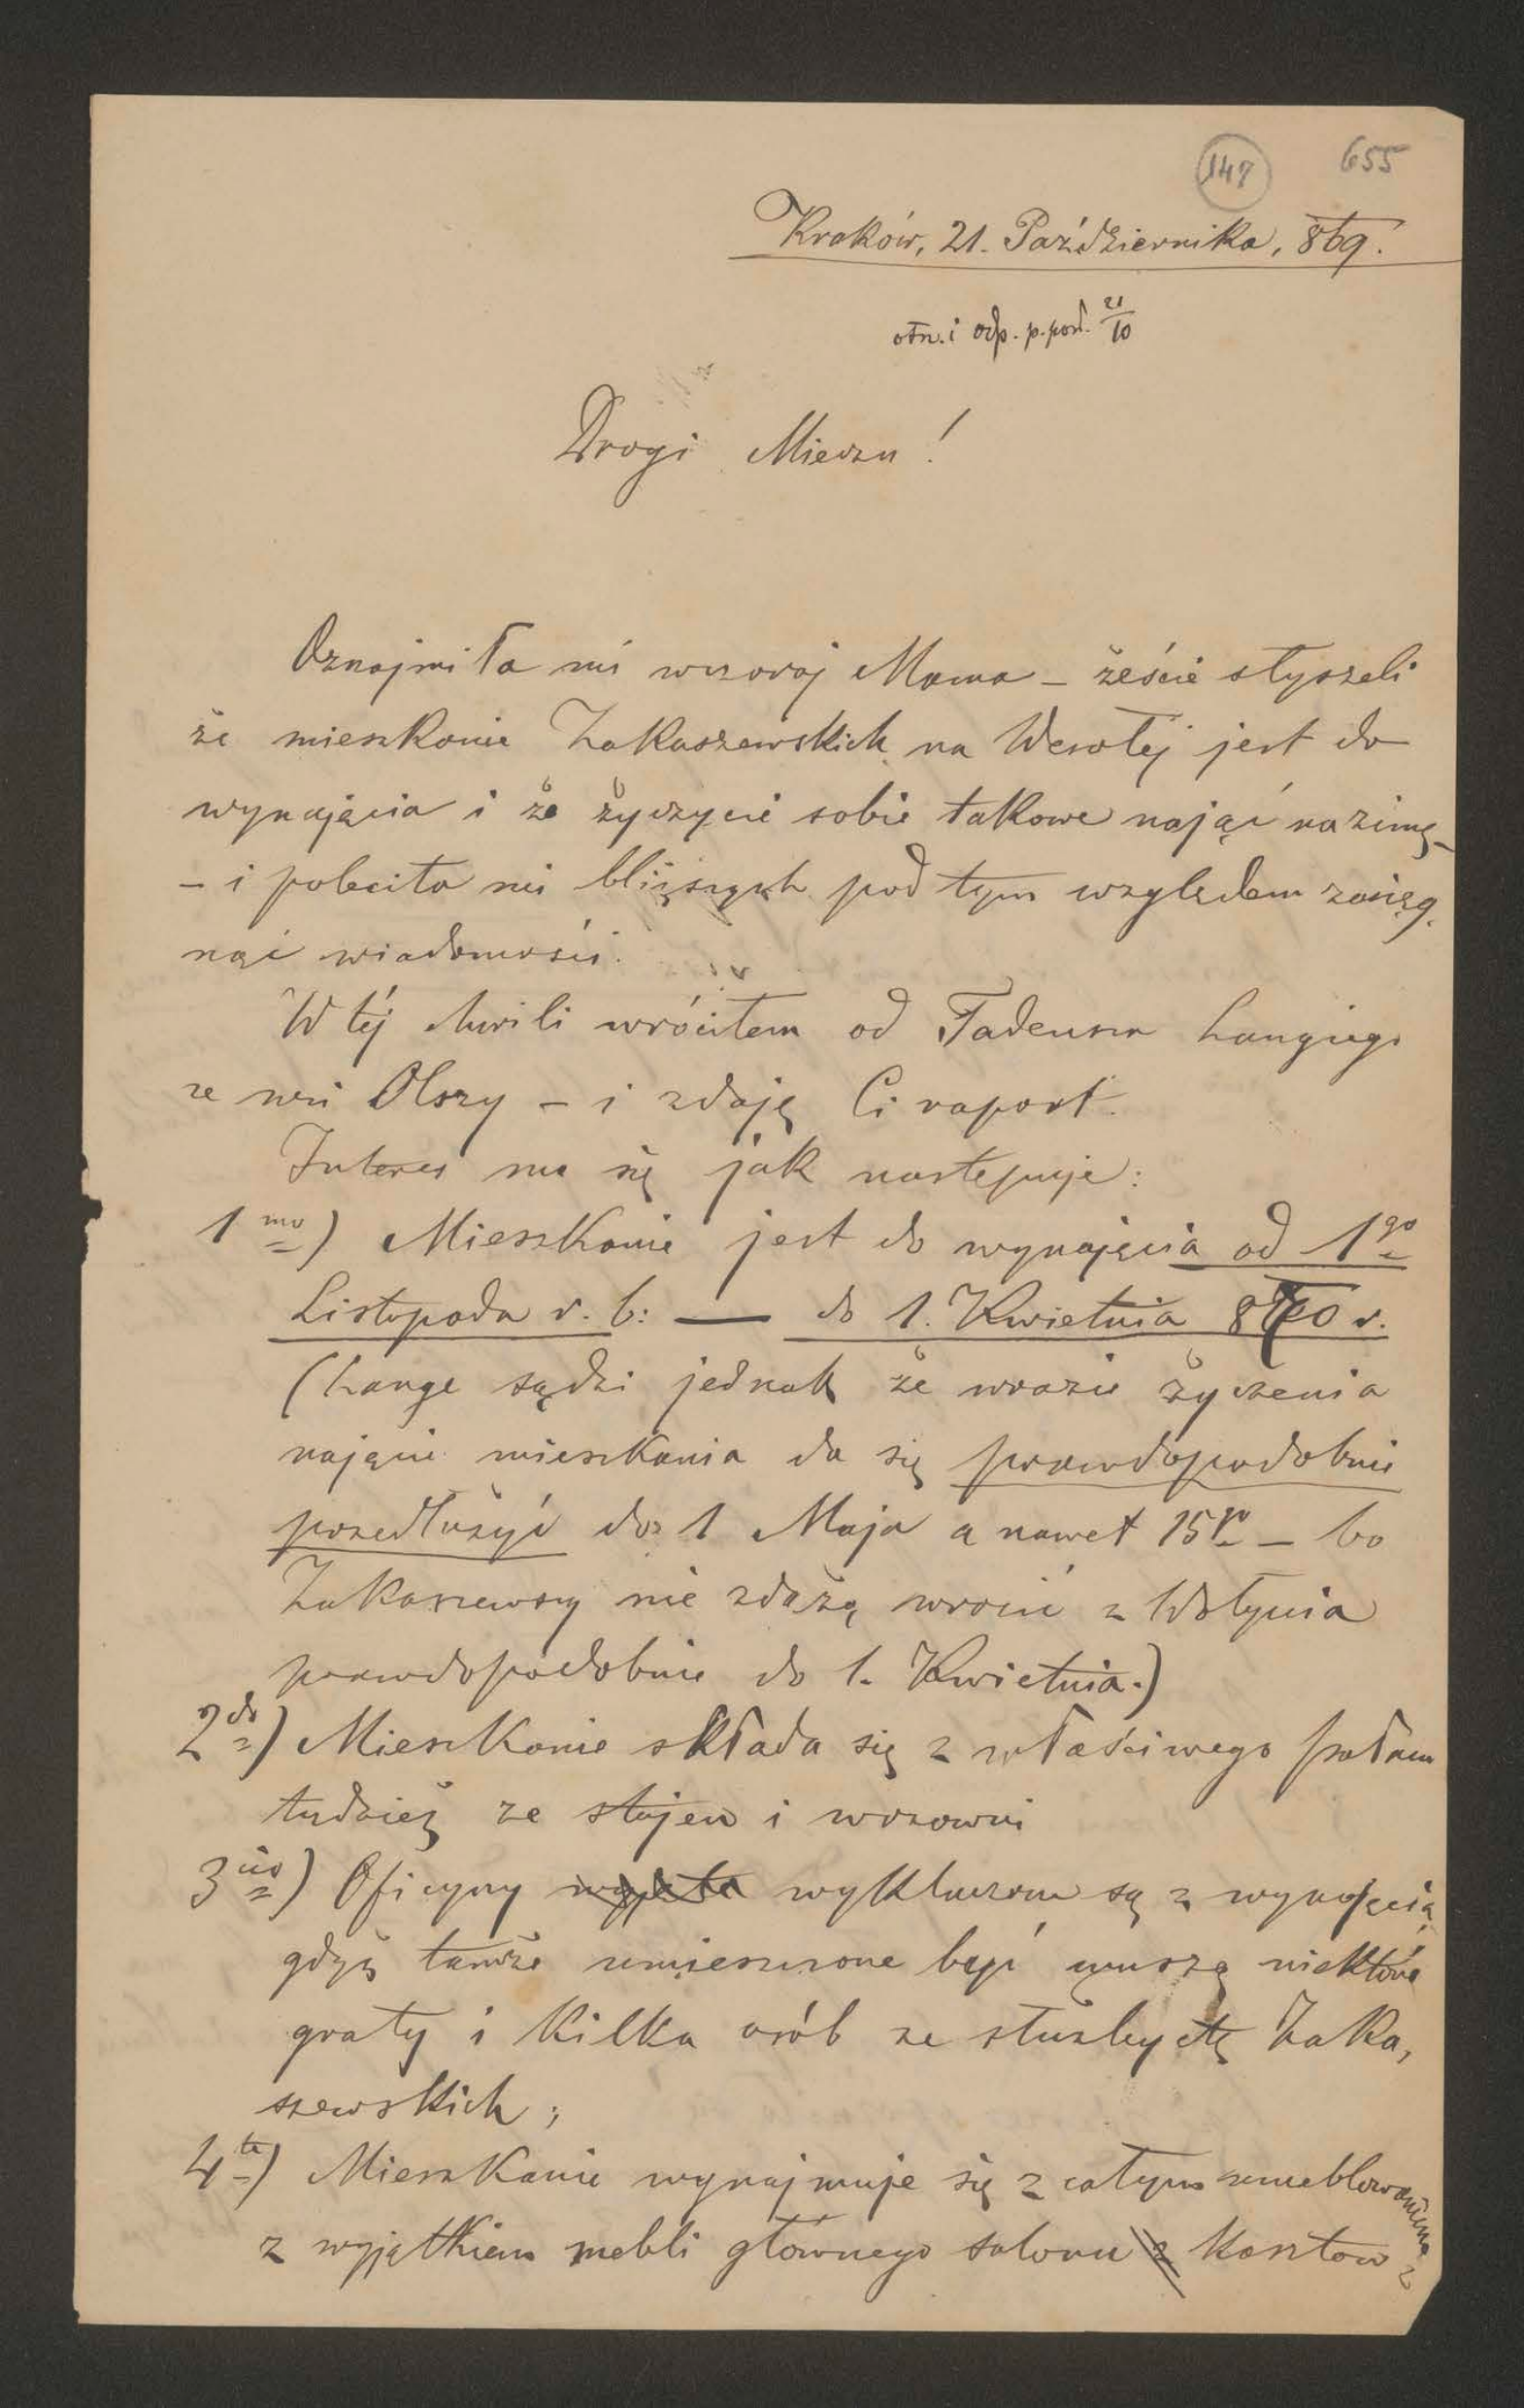 147 655
Kraków, 21. Października, 869.
otrz. i odp. p. pos. 21/10
Drogi Mieczu!
Oznajmiła mi wczoraj Mama – żeście słyszeli
że mieszkanie Zakaszewskich na Wesołéj jest do
wynajęcia i że życzycie sobie takowe nająć na zimę –
– i poleciła mi bliższych pod tym względem zasięg,
nąć wiadomości.
W téj chwili wróciłem od Tadeusza Langiego
ze wsi Olszy – i zdaję Ci raport.
Interes ma się jak następuje:
1mo) Mieszkanie jest do wynajęcia od 1go
Listopada r. b: — do 1. Kwietnia 870 r.
(Lange sądzi jednak że wrazie życzenia
najęcie mieszkania da się prawdopodobnie
przedłużyć do 1 Maja a nawet 15go – bo
Zakaszewscy nie zdążą wrócić z Wołynia
prawdopodobnie do 1. Kwietnia.)
2do) Mieszkanie składa się z właściwego pałacu
tudzież ze stajen i wozowni
3tio) Oficyny wyjęte wykluczone są z wynajęcia
gdyż tamże umieszczone być muszą niektóre
graty i kilka osób ze służby Zaka,
szewskich;
4te) Mieszkanie wynajmuje się z całym umeblowaniem
z wyjątkiem mebli głównego salonu z kosztow z